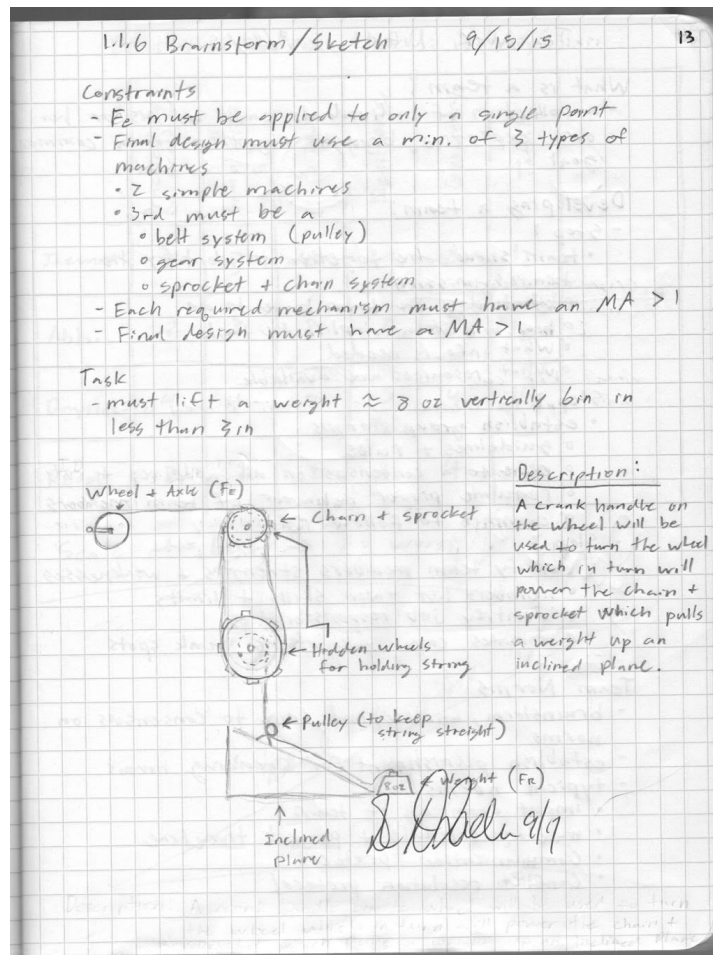 1.1.6 Brainstorm/Sketch 9/15/15 13
Constraints
- FE must be applied to only a single point
- Final design must use a min. of 3 types of
machines
• 2 simple machines
• 3rd must be a
∘ belt system (pulley)
∘ gear system
∘ sprocket + chain system
- Each required mechanism must have an MA > 1
- Final design must have a MA > 1
Task
- must lift a weight ≈ 8 oz vertically 6in in
less than 3 in
Wheel + Axle (FE)
← Chain + sprocket
← Hidden wheels
for holding string
← Pulley (to keep
string streight)
8 oz ← Weight (FR)
Inclined
plane
Description:
A crank handle on
the wheel will be
used to turn the wheel
which in turn will
power the chain +
sprocket which pulls
a weight up an
inclined plane.
9/9